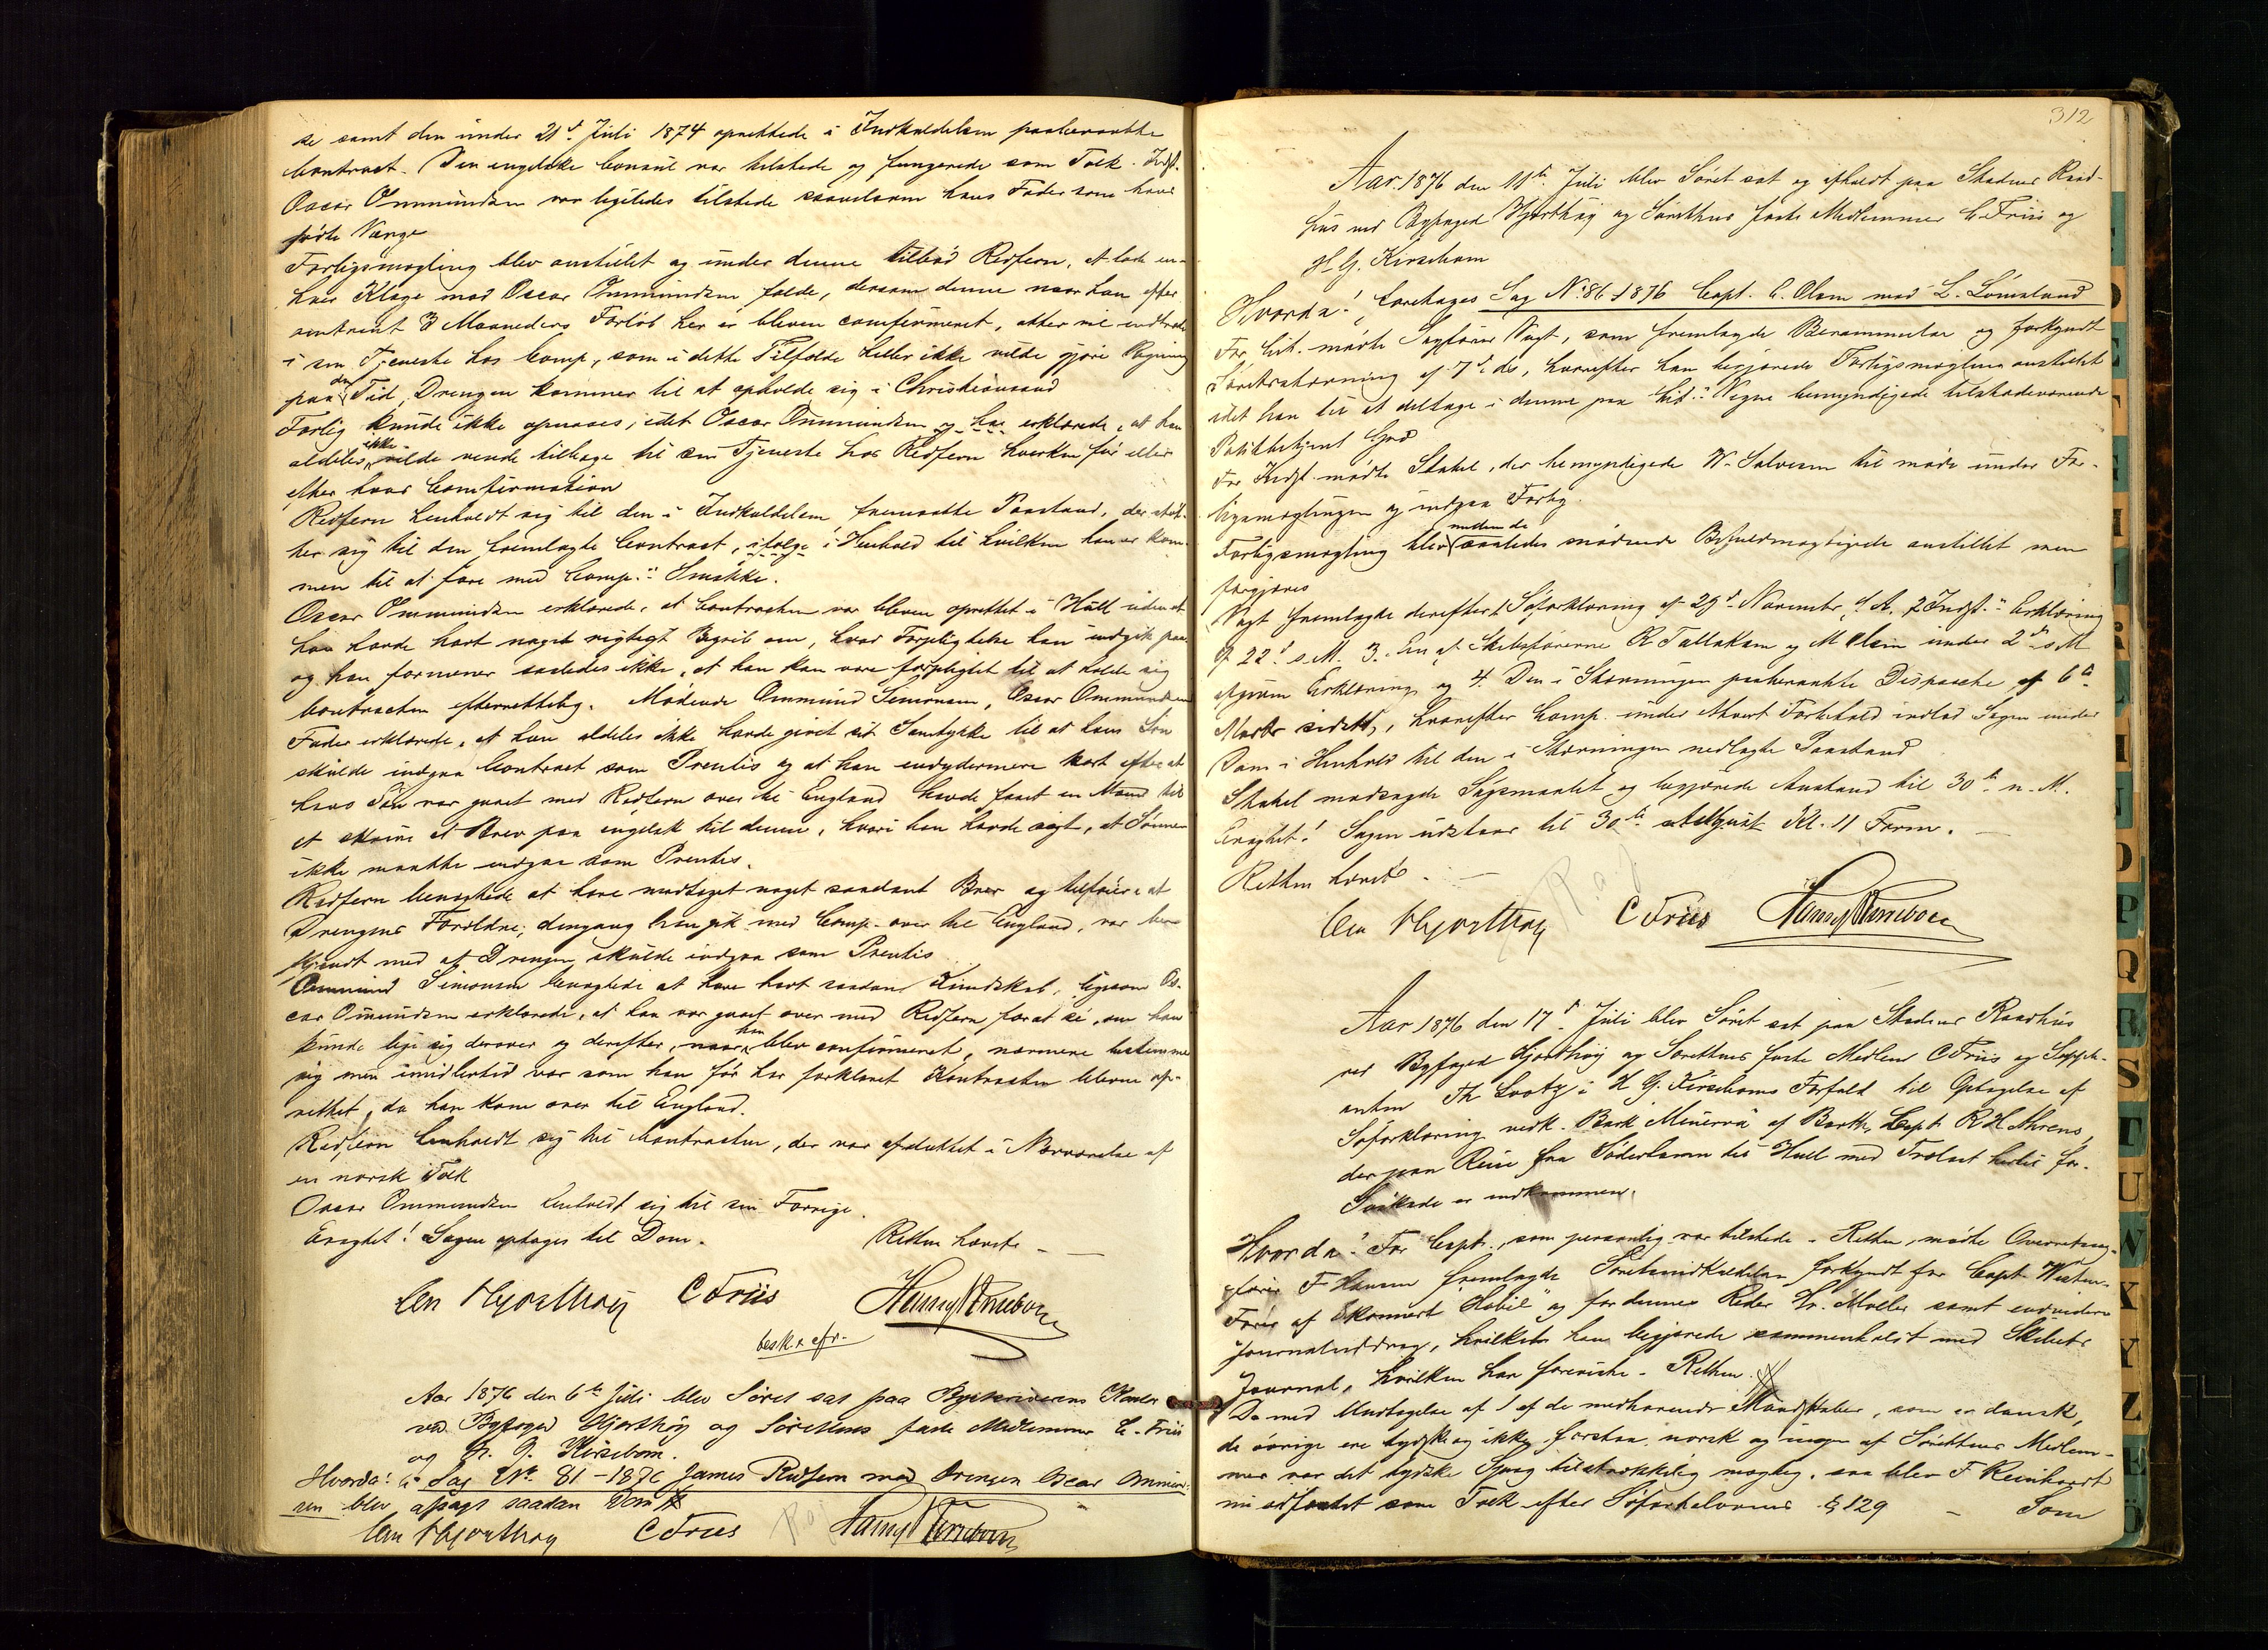 se samt den under 21d. Juli 1874 oprettede i Indkaldelsen paaberaabte
Contract. Den engelske Consul var tilstede og fungerede som Tolk. Indst.
Oscar Ommundsen var ligeledes tilstede saavelsom hans Fader som hans
fødte Værge
Forligsmægling blev anstillet og under denne tilbød Redfern, at lade en-
hver Klage mod Oscar Ommundsen falde, dersom denne naar han efter
omtrent 3 Maaneders Forløb her er bleven confirmeret, atter vil indtræde
i sin Tjeneste hos Comp., som i dette Tilfælde heller ikke vilde gjøre Regning
paa den Tid, Drengen kommer til at opholde sig i Christianssand
Forlig kunde ikke opnaaes, idet Oscar Ommundsen og han erklærede, at han
aldeles ikke vilde vende tilbage til sin Tjeneste hos Redfern hverken før eller
efter hans Confirmation
Redfern henholdt sig til den i Indkaldelsen fremsatte Paastand, der støt-
ter sig til den fremlagte Contract, ifølge i Henhold til hvilken han er kom-
men til at fare med Comp.s Smakke.
Oscar Ommundsen erklærede, at Contracten var bleven oprettet i Hull uden at
han havde havt noget rigtigt Begreb om, hvad Forpligtelse han indgik paa
og han formener saaledes ikke, at han kan være forpligtet til at holde sig
Contracten efterrettelig. Mødende Ommund Simonsen, Oscar Ommundsens
Fader erklærede, at han aldeles ikke havde givet sit Samtykke til at hans Søn
skulde indgaa Contract som Prentis og at han endydermere kort efter at
hans Søn var gaaet med Redfern over til England havde faaet en Mand til
at skrive et Brev paa engelsk til denne, hvori han havde sagt, at Sønnen
ikke maatte indgaa som Prentis.
Redfern benægtede at have modtaget noget saadant Brev og tilføier at
Drengens Forældre, dengang han gik med Comp. over til England, var be-
kjendt med at Drengen skulde indgaa som Prentis
Ommund Simonsen benægtede at have havt saadan Kundskab, ligesom Os-
car Ommundsen erklærede, at han var gaaet over med Redfern for at se, om han
kunde lige sig derover og derefter, naar han blev confirmeret, nærmere bestemme
sig men imidlertid var som han før har forklaret Kontracten bleven op-
rettet, da han kom over til England.
Redfern henholdt sig til Contracten, der var afsluttet i Nærværelse af
en norsk Tolk
Oscar Ommundsen henholdt sig til sin Forrige.
Eragtet! Sagen optages til Dom. Retten hævet.
Chr Hjorthøy C Friis
besk. & efr.
Aar 1876 den 6te Juli blev Søret sat paa Byskriverens Kontor
ved Byfoged Hjorthøy og Sørettens faste Medlemmer C. Friis
og H. G. Kirsebom.
Hvorda: i Sag No. 81-1876 James Redfern mod Drengen Oscar Ommund-
sen blev afsagt saadan Dom
Chr Hjorthøy C Friis
312
Aar 1876 den 11te Juli blev Søret sat og afholdt paa Stadens Raad-
hus ved Byfoged Hjorthøy og Sørettens faste Medlemmer C. Friis og
H. G. Kirsebom
Hvorda! foretoges Sag No. 86-1876 Capt. C. Olsen mod L. Lømsland
For Cit. mødte Sagfører Vogt, som fremlagde Berammelse og forkyndt
Søretsstævning af 7d. ds, hvorefter han begjærede Forligsmægling anstillet
idet han til at deltage i denne paa Cit.s Vegne bemyndigede tilstedeværende
Politibetjent
For Indst. mødte Stabel, der bemyndigede W. Salvesen til møde under For-
ligsmæglingen og indgaa Forlig.
Forligsmægling blev mellem de saaledes mødende Befuldmægtigede anstillet men
forgjæves
Vogt fremlagde derefter 1 Søforklaring af 29d. November f. A. 2 Indst.s Erklæring
af 22d. s. M. 3. En af Skibsførerne R Tallaksen og M Olsen under 2den s. M
afgiven Erklæring og 4. Den i Stævningen paaberaabte Dispasche af 6te
Marts sidstl., hvorefter Comp. under Alvert Forbehold indlod Sagen under
Dom i Henhold til den i Stævningen nedlagte Paastand
Stabel modsagde Søgsmaalet og begjærede Anstand til 30te n. M.
Eragtet! Sagen udstaar til 30te August Kl. 11 Form.
Retten hævet.
Chr Hjorthøy C Friis
Aar 1876 den 17d. Juli blev Søret sat paa Stadens Raadhus
ved Byfoged Hjorthøy og Sørettens faste Medlem C Friis og Supple-
anten Th. Lootz i H G. Kirseboms Forfald til Optagelse af
Søforklaring vedk. Bark Minerva af Barth, Capt. R H Ahrens,
der paa Reise fra Söderhamn til Hull med Trælast hertil for-
Søskade er indkommen.
Hvorda! For Capt., som personlig var tilstede i Retten, mødte Overretssag-
fører F Hansen fremlagde Søretsindkaldelse forkyndt for Capt.
Fører af Skonnert "Habil" og for dennes Reder Hr. Møller samt endvidere
Journaludtog, hvilket han begjærede sammenholdt med Skibets
Journal, hvilken han foreviste i Retten.
Da med Undtagelse af 1 af de medhavende Mandskaber, som er dansk,
de øvrige ere tydske og ikke forstaa norsk og ingen af Sørettens Medlem-
mer var det tydske Sprog tilstrækkelig mægtig, saa blev F Reinhardt
udfæstet som Tolk efter Søfartslovens § 129 - Som